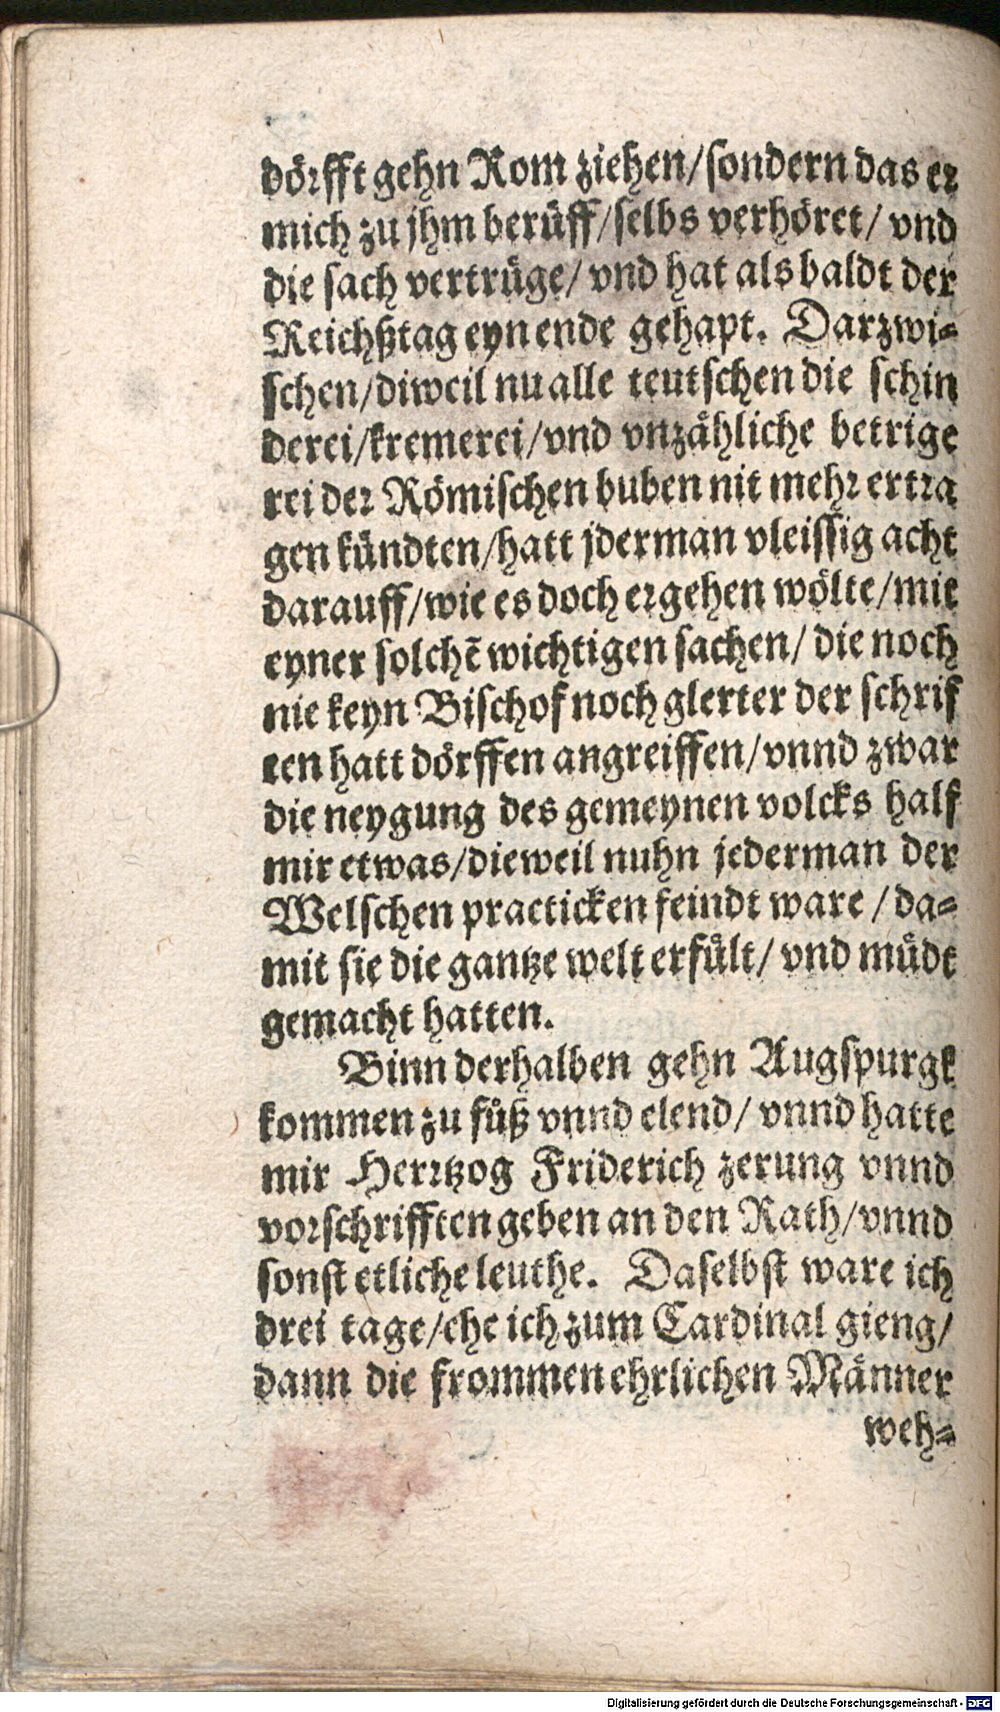 dörfft gehn Rom ziehen/sondern das er
mich zu jhm berüff/selbs verhöret/ vnd
die sach vertrüge/ vnd hat als baldt der
Reichßtag eyn ende gehapt. Darzwi-
schen/diweil nu alle teutschen die schin
derei/kremerei/vnd vnzähliche betrige
rei der Römischen buben nit mehr ertra
gen kündten/hatt jderman vleissig acht
darauff/wie es doch ergehen wölte/mit
eyner solchē wichtigen sachen/ die noch
nie keyn Bischof noch glerter der schrif
ten hatt dörffen angreiffen/vnnd zwar
die neygung des gemeynen volcks half
mir etwas/dieweil nuhn jederman der
Welschen practicken feindt ware /da-
mit sie die gantze welt erfült/ vnd müdt
gemacht hatten.
Binn derhalben gehn Augspurgk
kommen zu fůß vnnd elend/ vnnd hatte
mir Hertzog Friderich zerung vnnd
vorschrifften geben an den Rath/vnnd
sonst etliche leuthe. Daselbst ware ich
drei tage/ehe ich zum Cardinal gieng/
dann die frommen ehrlichen Männer
weh-
Digitalisierung gefördert durch die Deutsche Forschungsgemeinschaft - DFG